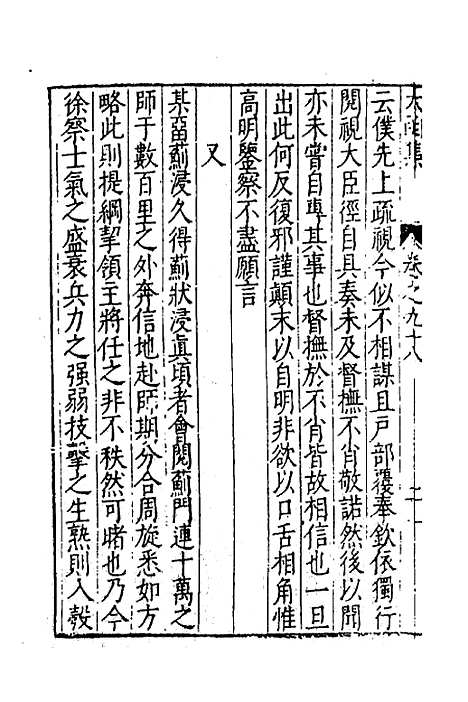 太函集
卷之九十八
二
云僕先上疏視今似不相謀且戶部覆奉欽依獨行
閱視大臣徑自具奏未及督撫不肖敬諾然後以聞
亦未嘗自專其事也督撫於不肖皆故相信也一旦
出此何反復邪謹顛末以自明非欲以口舌相角惟
高明鑒察不盡願言
又
某畱薊浸久得薊狀浸真頃者會閱薊門連十萬之
師于數百里之外奔信地赴師期分合周旋悉如方
略此則提綱挈領主將任之非不秩然可睹也乃今
徐察士氣之盛衰兵力之强弱技擊之生熟則入彀